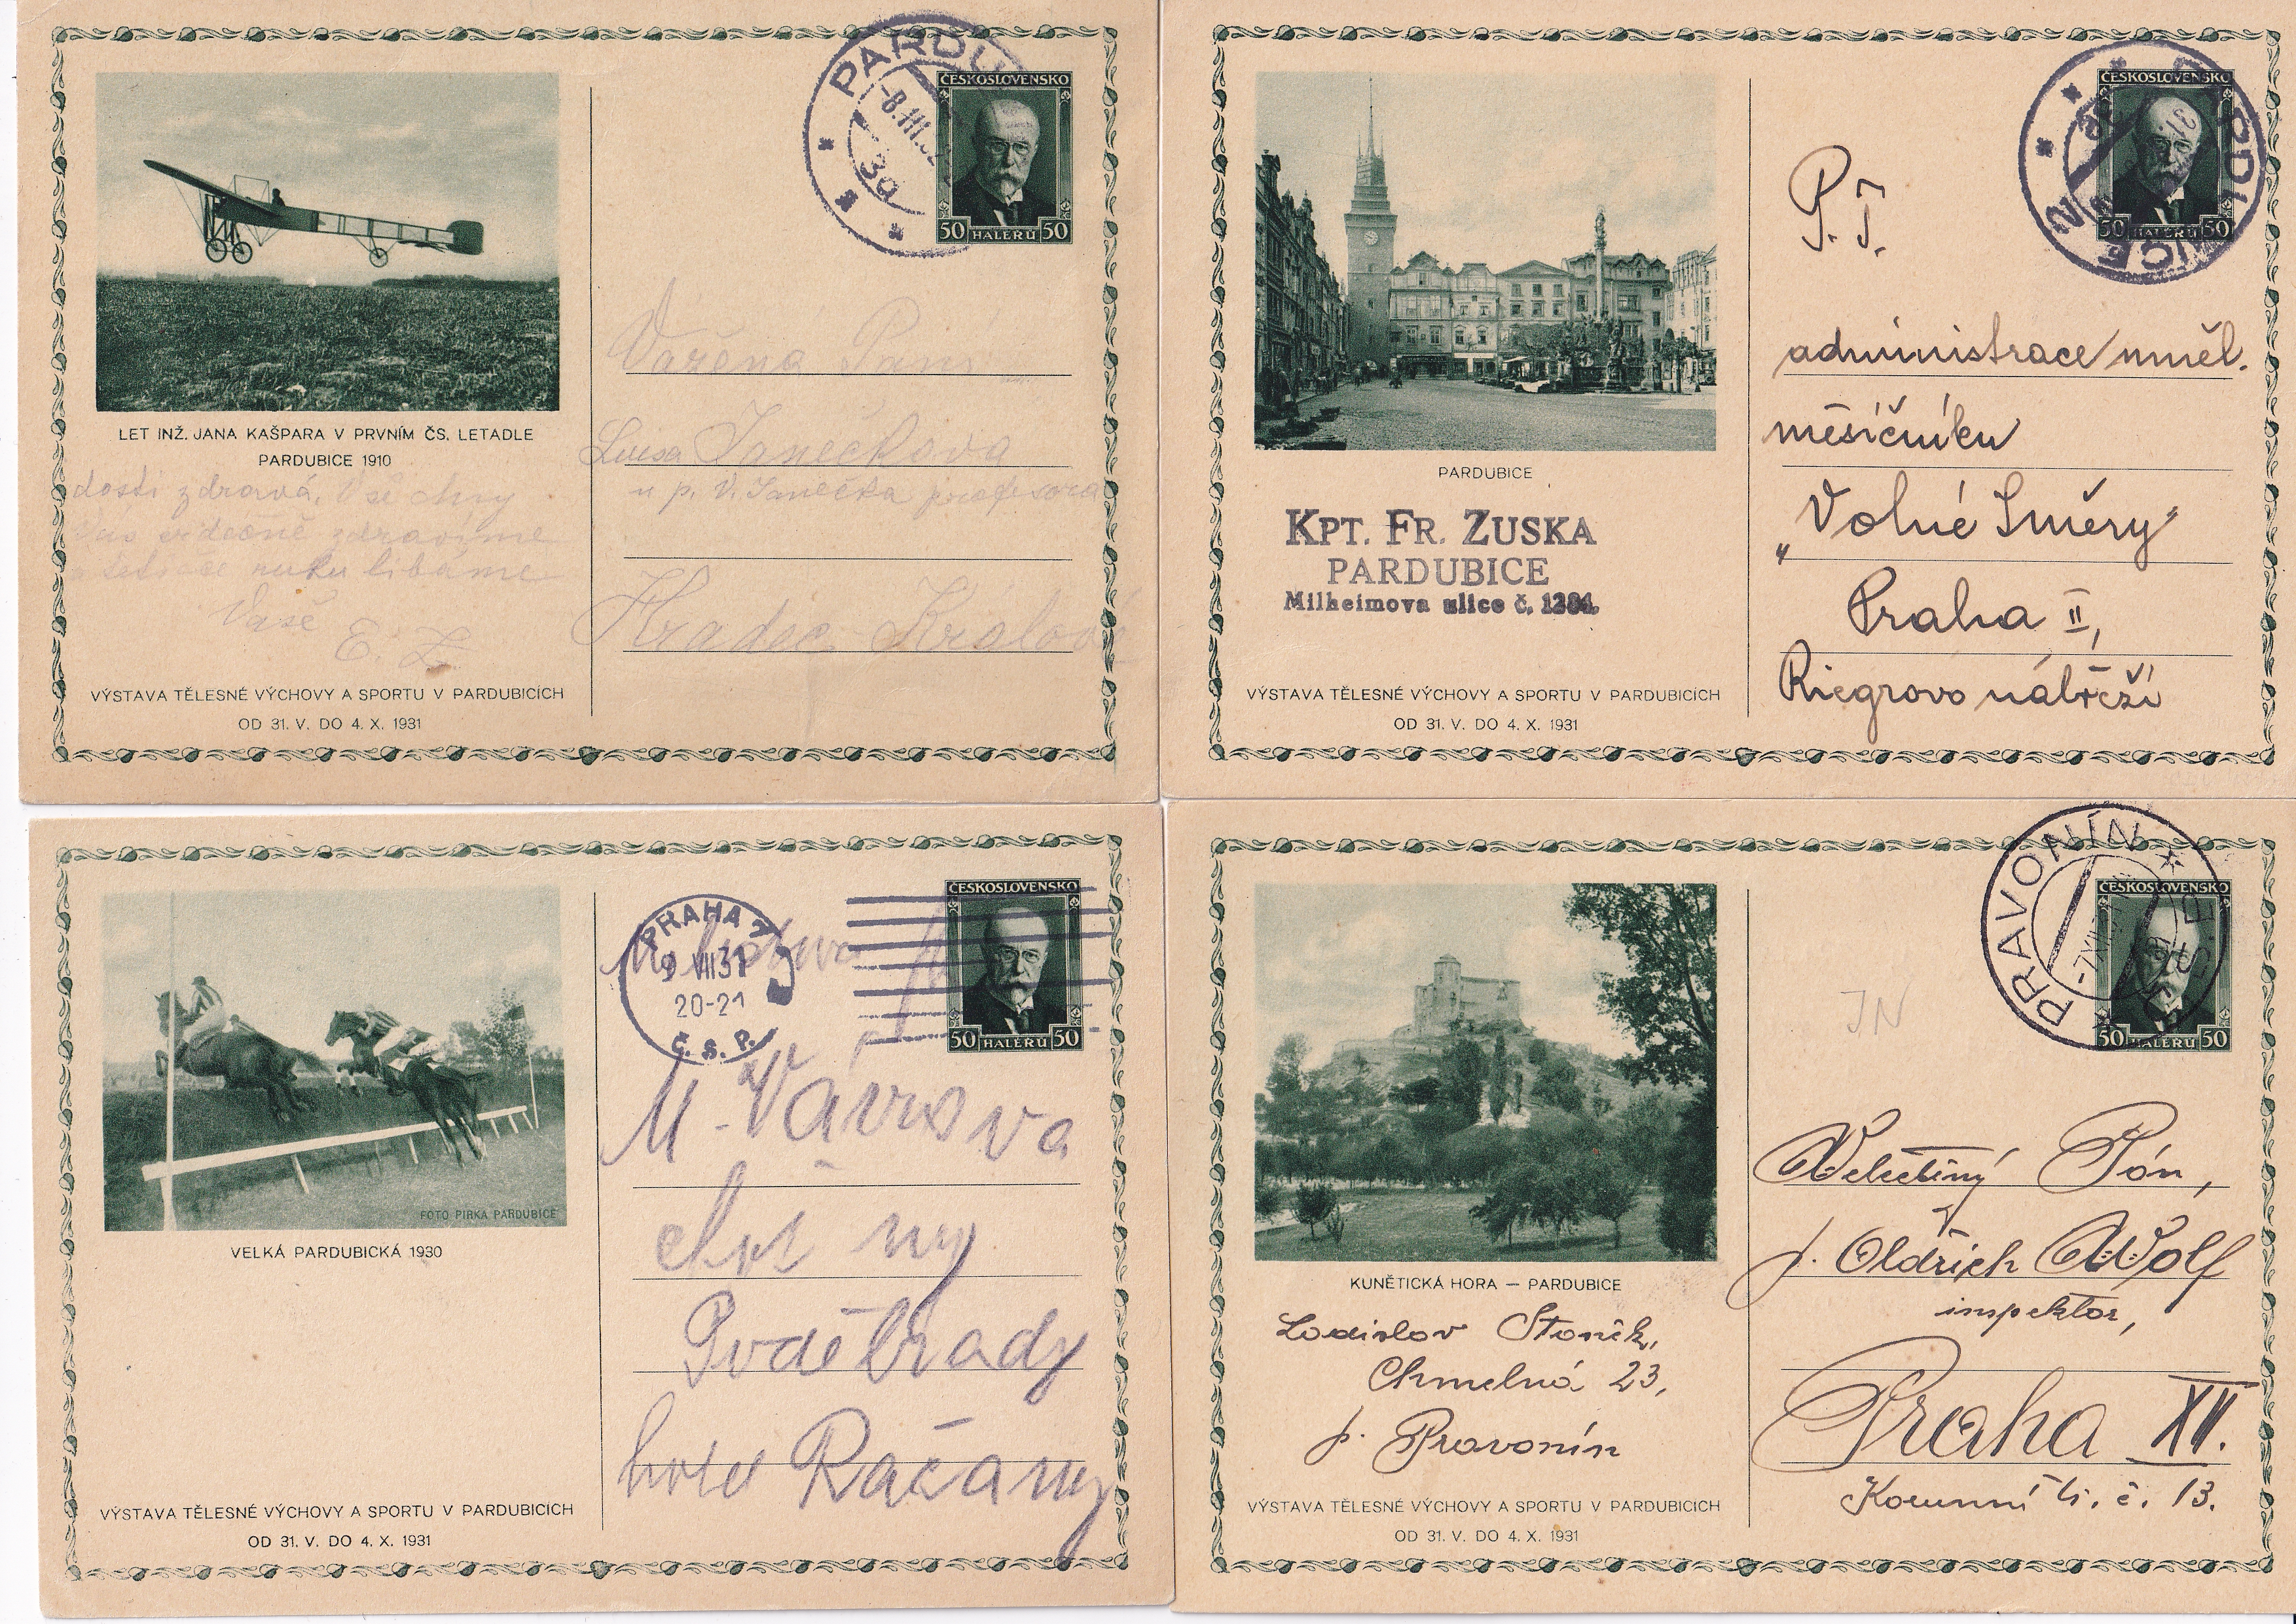 PARDU
-8.III.32
3a
ČESKOSLOVENSKO
50 HALÉŘŮ 50
LET INŽ. JANA KAŠPARA V PRVNÍM ČS. LETADLE
PARDUBICE 1910
dosti zdravá. Všechny
Vás srdečně zdravíme
ruku líbáme
Vaše
E. Z.
VÝSTAVA TĚLESNÉ VÝCHOVY A SPORTU V PARDUBICÍCH
OD 31. V. DO 4. X. 1931
Vážená Paní
Luisa Janečkova
u p. V. Janečka profesora
Hradec Králové
PARDUBICE 2
ČESKOSLOVENSKO
50 HALÉŘŮ 50
PARDUBICE
KPT. FR. ZUSKA
PARDUBICE
Milheimova ulice č. 1394.
VÝSTAVA TĚLESNÉ VÝCHOVY A SPORTU V PARDUBICÍCH
OD 31. V. DO 4. X. 1931
P. T.
administrace uměl.
měsíčníku
„Volné Směry"
Praha II,
Riegrovo nábřeží
FOTO PIRKA PARDUBICE
VELKÁ PARDUBICKÁ 1930
VÝSTAVA TĚLESNÉ VÝCHOVY A SPORTU V PARDUBICÍCH
OD 31. V. DO 4. X. 1931
PRAHA 7
9 VII 31
20-21
Č. S. P.
ČESKOSLOVENSKO
50 HALÉŘŮ 50
M. Vávrova
Poděbrady
hotel Račany
PRAVONÍN
-7.XII.
ČESKOSLOVENSKO
50 HALÉŘŮ 50
JN
KUNĚTICKÁ HORA — PARDUBICE
Ladislav Staněk,
Chmelná 23,
p. Pravonín
VÝSTAVA TĚLESNÉ VÝCHOVY A SPORTU V PARDUBICÍCH
OD 31. V. DO 4. X. 1931
Velectěný Pán,
p. Oldřich Wolf
inspektor,
Praha XII.
Korunní tř. č. 13.